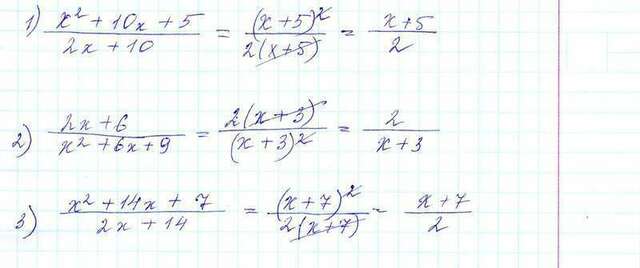 1) (x² + 10x + 5)/(2x + 10) = (x+5)²/(2(x+5)) = (x+5)/2
2) (2x+6)/(x² + 6x + 9) = (2(x+3))/((x+3)²) = 2/(x+3)
3) (x² + 14x + 7)/(2x + 14) = (x+7)²/(2(x+7)) = (x+7)/2